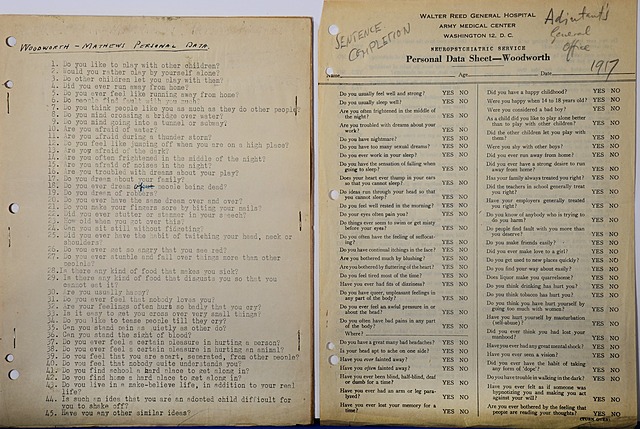 WOODWORTH - MATHEWS PERSONAL DATA
1. Do you like to play with other children?
2. Would you rather play by yourself alone?
3. Do other children let you play with them?
4. Did you ever run away from home?
5. Do you ever feel like running away from home?
6. Do people find fault with you much?
7. Do you think people like you as much as they do other people?
8. Do you mind crossing a bridge over water?
9. Do you mind going into a tunnel or subway?
10. Are you afraid of water?
11. Are you afraid during a thunder storm?
12. Do you feel like jumping off when you are on a high place?
13. Are you afraid of the dark?
14. Are you often frightened in the middle of the night?
15. Are you afraid of noises in the night?
16. Are you troubled with dreams about your play?
17. Do you dream about your family?
18. Do you ever dream of people being dead?
19. Do you dream of robbers?
20. Do you ever have the same dream over and over?
21. Do you make your fingers sore by biting your nails?
22. Did you ever stutter or stammer in your speech?
24. Can you sit still without fidgeting?
25. Did you ever have the habit of twitching your head, neck or
shoulders?
26. Do you ever get so angry that you see red?
27. Do you ever stumble and fall over things more than other
people?
28. Is there any kind of food that makes you sick?
29. Is there any kind of food that disgusts you so that you
cannot eat it?
30. Are you usually happy?
31. Do you ever feel that nobody loves you?
32. Are your feelings often hurt so badly that you cry?
33. Is it easy to get you cross over very small things?
34. Do you like to tease people till they cry?
35. Can you stand pain as quietly as other do?
36. Can you stand the sight of blood?
37. Do you ever feel a certain pleasure in hurting a person?
38. Do you ever feel a certain pleasure in hurting an animal?
39. Do you feel that you are smart, separated, from other people?
40. Do you feel that nobody quite understands you?
41. Do you find school a hard place to get along in?
42. Do you find home a hard place to get along in?
43. Do you live in a make-believe life, in addition to your real
life?
44. Is such an idea that you are an adopted child difficult for
you to shake off?
45. Have you any other similar ideas?
WALTER REED GENERAL HOSPITAL
ARMY MEDICAL CENTER
WASHINGTON 12, D. C.
SENTENCE
COMPLETION
Adjutant's
General
Office
1917
NEUROPSYCHIATRIC SERVICE
Personal Data Sheet—Woodworth
Name Age Date
Do you usually feel well and strong? YES NO
Do you usually sleep well? YES NO
Are you often frightened in the middle of
the night? YES NO
Are you troubled with dreams about your
work? YES NO
Do you have nightmares? YES NO
Do you have too many sexual dreams? YES NO
Do you ever walk in your sleep? YES NO
Do you have the sensation of falling when
going to sleep? YES NO
Does your heart ever thump in your ears
so that you cannot sleep? YES NO
Do ideas run through your head so that
you cannot sleep? YES NO
Do you feel well rested in the morning? YES NO
Do your eyes often pain you? YES NO
Do things ever seem to swim or get misty
before your eyes? YES NO
Do you often have the feeling of suffocat-
ing? YES NO
Do you have continual itchings in the face? YES NO
Are you bothered much by blushing? YES NO
Are you bothered by fluttering of the heart? YES NO
Do you feel tired most of the time? YES NO
Have you ever had fits of dizziness? YES NO
Do you have queer, unpleasant feelings in
any part of the body? YES NO
Do you ever feel an awful pressure in or
about the head? YES NO
Do you often have bad pains in any part
of the body? YES NO
Where?
Do you have a great many bad headaches? YES NO
Is your head apt to ache on one side? YES NO
Have you ever fainted away? YES NO
Have you often fainted away? YES NO
Have you ever been blind, half-blind, deaf
or dumb for a time? YES NO
Have you ever had an arm or leg para-
lyzed? YES NO
Have you ever lost memory for a
time? YES NO
Did you have a happy childhood? YES NO
Were you happy when 14 to 18 years old? YES NO
Were you considered a bad boy? YES NO
As a child did you like to play alone better
than to play with other children? YES NO
Did the other children let you play with
them? YES NO
Were you shy with other boys? YES NO
Did you ever run away from home? YES NO
Did you ever have a strong desire to
run away from home? YES NO
Has your family always treated you right? YES NO
Did the teachers in school generally treat
you right? YES NO
Have your employers generally treated
you right? YES NO
Do you know of anybody who is trying to
do you harm? YES NO
Do people find fault with you more than
you deserve? YES NO
Do you make friends easily? YES NO
Did you ever make love to a girl? YES NO
Do you get used to new places quickly? YES NO
Do you find your way about easily? YES NO
Does liquor make you quarrelsome? YES NO
Do you think drinking has hurt you? YES NO
Do you think tobacco has hurt you? YES NO
Do you think you have hurt yourself by
going too much with women? YES NO
Have you hurt yourself by masturbation
(self-abuse)? YES NO
Did you ever think you had lost your
manhood? YES NO
Have you ever had any great mental shock? YES NO
Have you ever seen a vision? YES NO
Did you ever have the habit of taking
any form of 'dope'? YES NO
Do you have trouble in walking in the dark? YES NO
Have you ever felt as if someone was
hypnotizing you and making you act
against your will? YES NO
Are you ever bothered by the feeling that
people are reading your thoughts? YES NO
(TURN OVER)